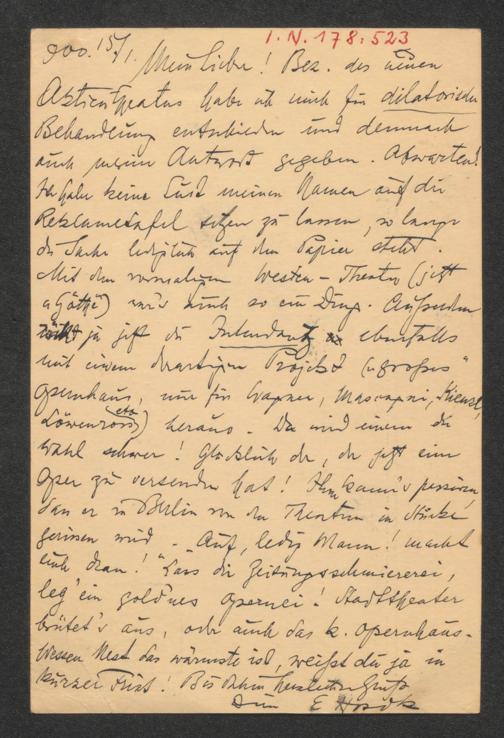 I.N. 178.523
900. 15/1.
Mein Lieber! Bez. des neuen
Aktientheaters habe ich mich für dilatorische
Behandlung entschieden und demnach
auch meine Antwort gegeben. Abwarten!
Ich habe keine Lust meinen Namen auf die
Reklametafel setzen zu lassen, so lange
die Sache lediglich auf dem Papier steht.
Mit dem vormaligen Westen-Theater (jetzt
) wär's auch so ein Ding. Außerdem
ja jetzt die Intendantz ebenfalls
mit einem derartigen Projekt („großes"
Opernhaus, nur für Wagner, Mascagni, Kienzl,
etc) heraus. Da wird einem die
Wahl schwer! Glücklich der, der jetzt eine
Oper zu versenden hat! Ihm kann's passiren,
daß er in Berlin von den Theatern in Stücke
gerissen wird. Auf, ledig Mann! macht
euch dran! Lass die Zeitungsschmiererei,
leg' ein gold'nes Opernei! Stadttheater
brütet's aus, oder auch das k. Opernhaus.
Wessen Nest das wärmste ist, weißt du ja in
kurzer Frist! Bis dahin herzlichen Gruß
Dein E